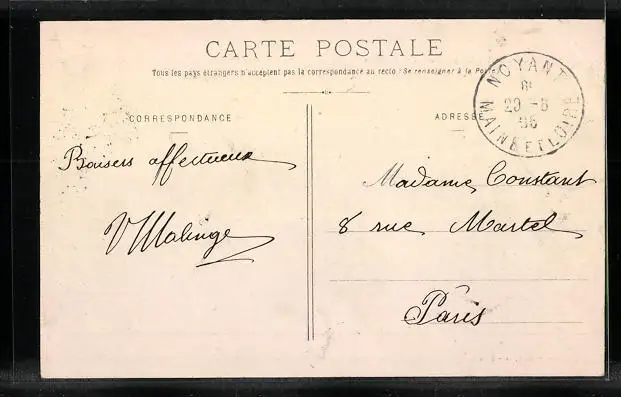 CARTE POSTALE
Tous les pays étrangers n'acceptent pas la correspondance au recto (Se renseigner à la Poste
CORRESPONDANCE
ADRESSE
NOYANT
20 -8
MAINE ET LOIRE
Baisers affectueux
VMalinge
Madame Constant
8 rue Martel
Paris